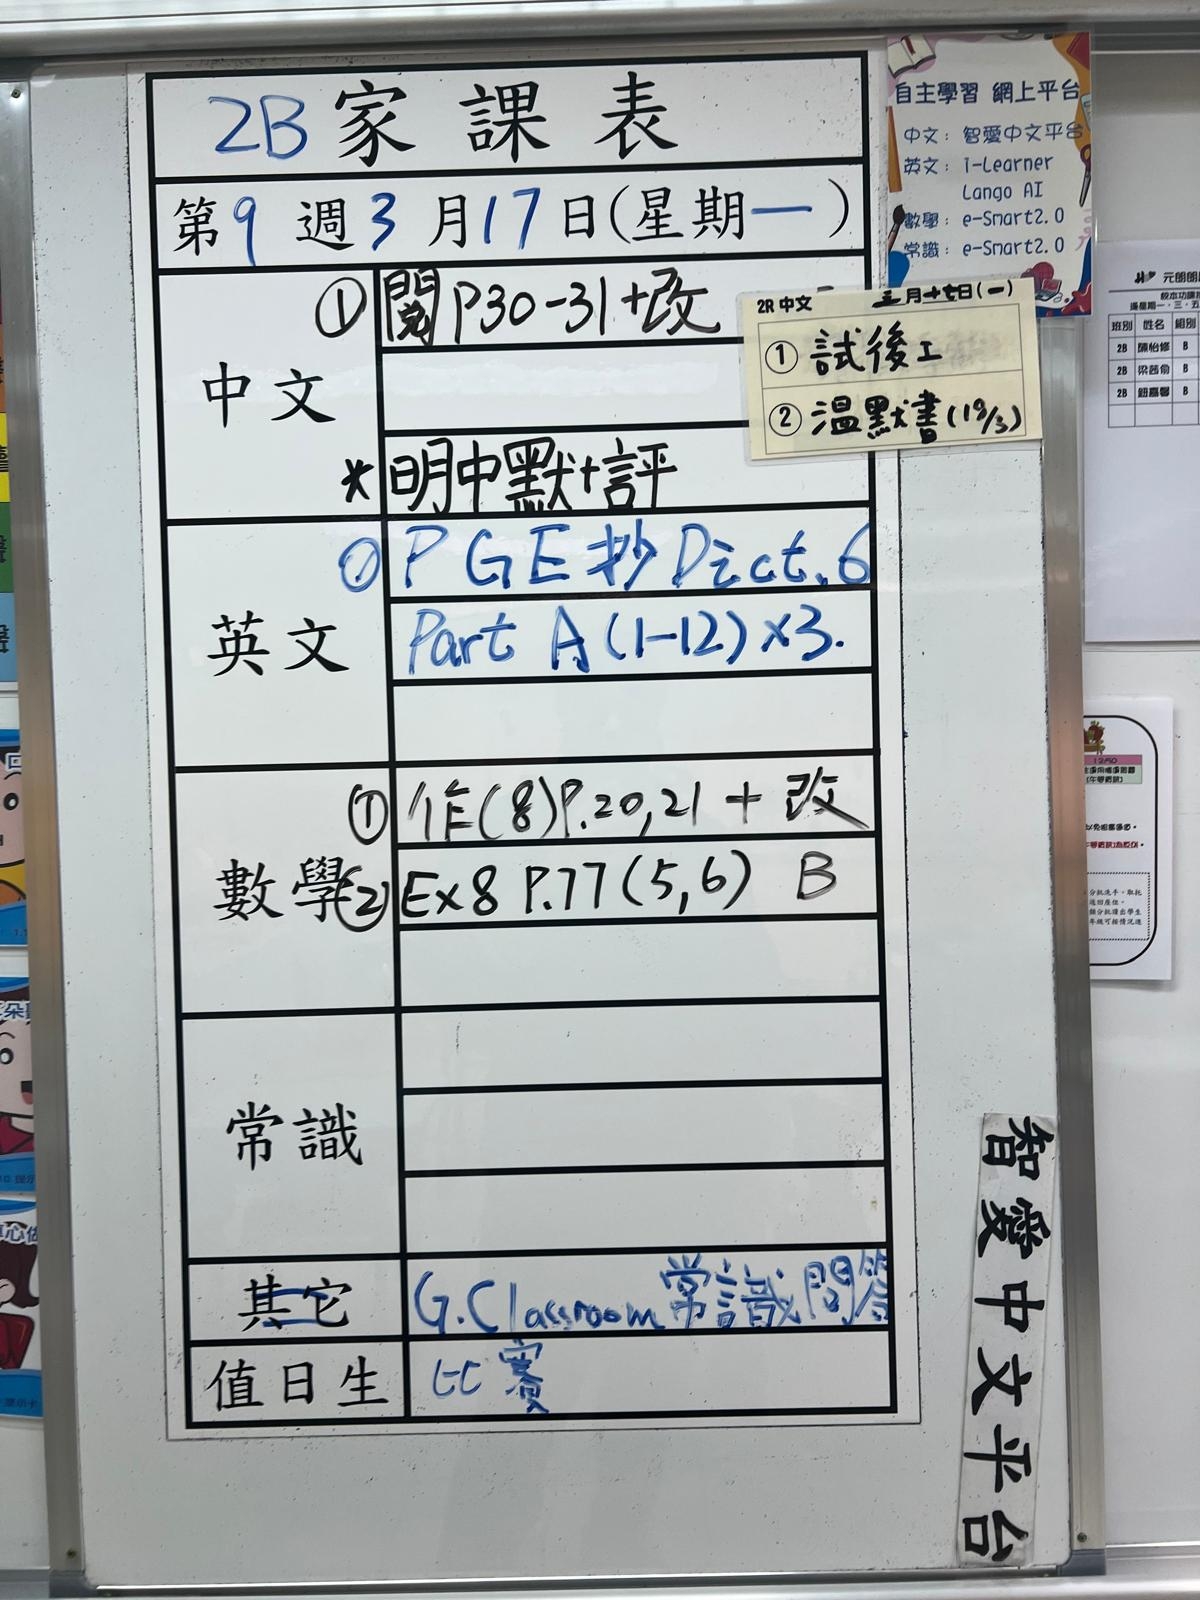 2B家課表
第9週3月17日(星期一)
中文
① 閱P30-31+改
* 明中默+評
英文
① PGE抄Dict.6
Part A(1-12)x3.
數學
① 作(8)P.20,21+改
(2) Ex8 P.77(5,6) B
常識
其它
G.Classroom常識問答
值日生
比賽
自主學習 網上平台
中文：智愛中文平台
英文：i-Learner
Lango AI
數學：e-Smart2.0
常識：e-Smart2.0
2R中文 三月十七日(一)
① 試後工
② 溫默書(19/3)
智愛中文平台
班別 姓名 組別
2B 陳怡修 B
2B 梁茜俞 B
2B 鈕嘉馨 B
12/50